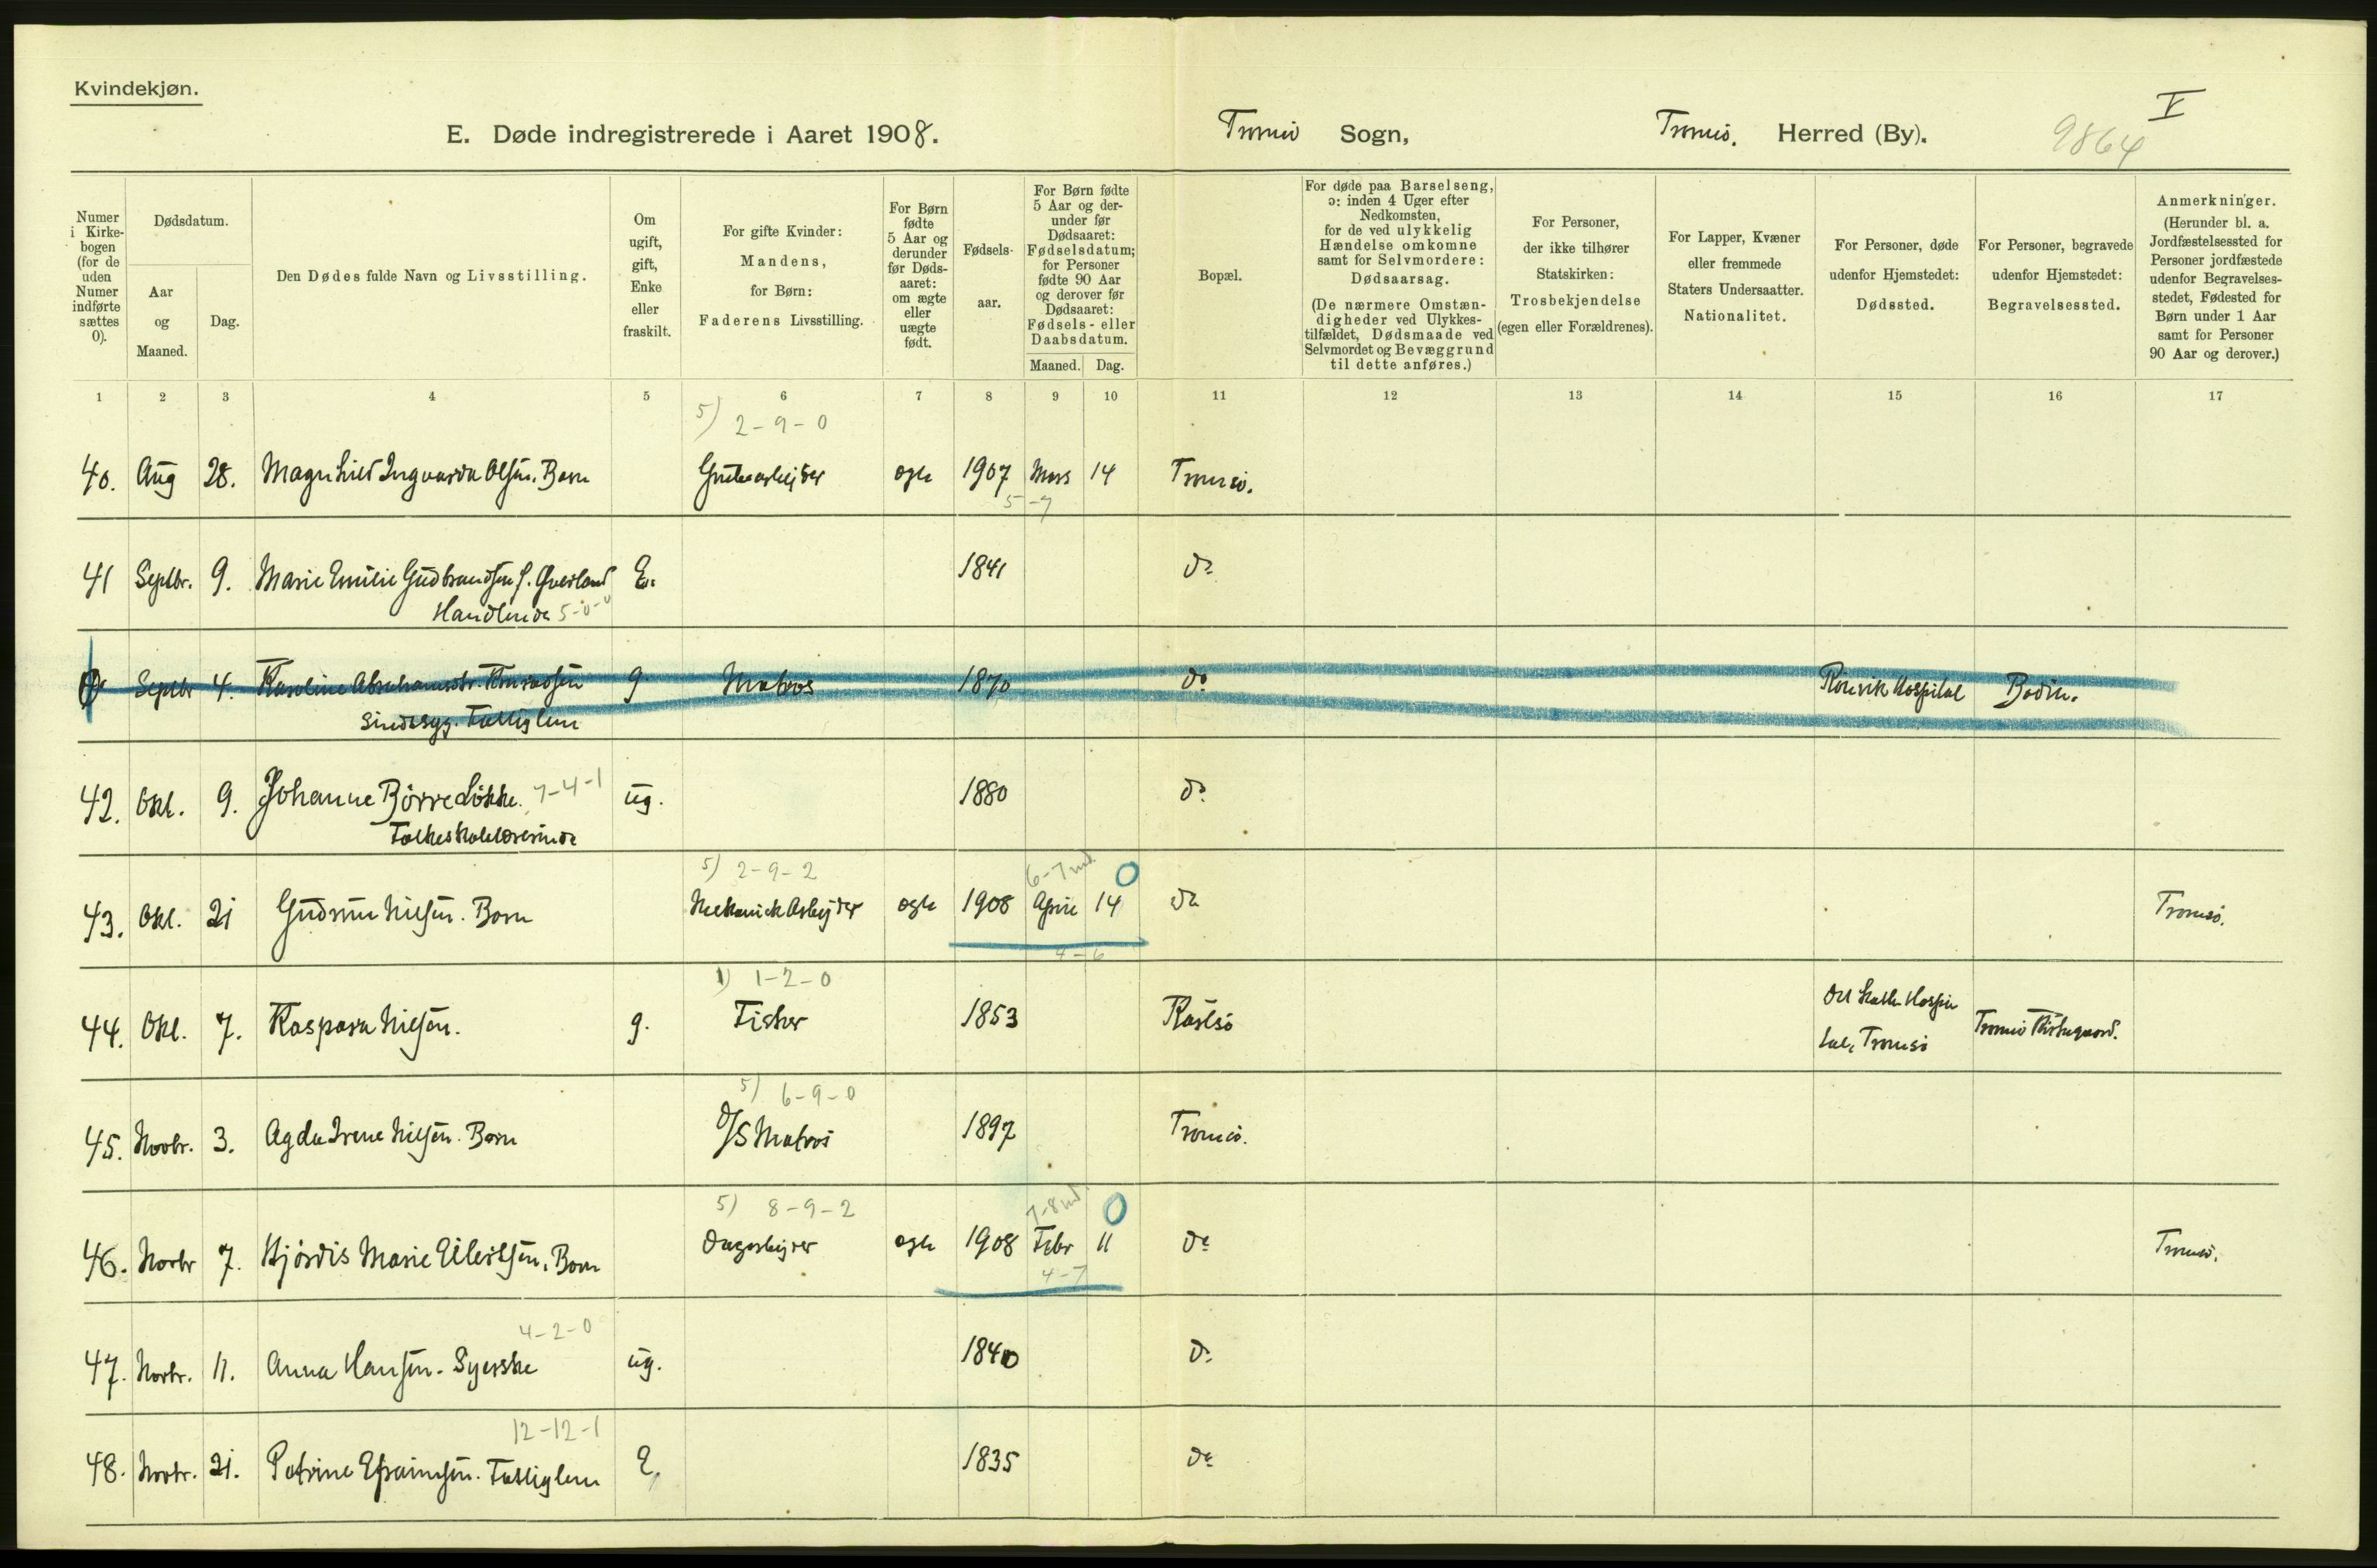 Kvindekjøn.
E. Døde indregistrerede i Aaret 1908. Tromsö Sogn, Tromsö. Herred (By). V
9864
Numer i Kirkebogen (for de uden Numer indførte sættes 0).
Dødsdatum.
Aar og Maaned.
Dag.
Den Dødes fulde Navn og Livsstilling.
Om ugift, gift, Enke eller fraskilt.
For gifte Kvinder: Mandens, for Børn: Faderens Livsstilling.
For Børn fødte 5 Aar og derunder før Dødsaaret: om ægte eller uægte født.
Fødselsaar.
For Børn fødte 5 Aar og derunder før Dødsaaret: Fødselsdatum; for Personer fødte 90 Aar og derover før Dødsaaret: Fødsels- eller Daabsdatum.
Maaned. Dag.
Bopæl.
For døde paa Barselseng, ɔ: inden 4 Uger efter Nedkomsten, for de ved ulykkelig Hændelse omkomne samt for Selvmordere: Dødsaarsag. (De nærmere Omstændigheder ved Ulykkestilfældet, Dødsmaade ved Selvmordet og Bevæggrund til dette anføres.)
For Personer, der ikke tilhører Statskirken: Trosbekjendelse (egen eller Forældrenes).
For Lapper, Kvæner eller fremmede Staters Undersaatter. Nationalitet.
For Personer, døde udenfor Hjemstedet: Dødssted.
For Personer, begravede udenfor Hjemstedet: Begravelsessted.
Anmerkninger. (Herunder bl. a. Jordfæstelsessted for Personer jordfæstede udenfor Begravelsesstedet, Fødested for Børn under 1 Aar samt for Personer 90 Aar og derover.)
1 2 3 4 5 6 7 8 9 10 11 12 13 14 15 16 17
5) 2-9-0
40. Aug 28. Magnhild Ingvarda Olsen. Barn Grubearbejder ægte 1907 Mars 14 Tromsö.
5-7
41 Septbr. 9. Marie Emilie Gudbrandsen f. Qverland E. 1841 do
Handlende 5-0-0
0 Septbr 4. Karoline Abrahamsdtr. Knudsen g. Matros 1870 do Rönvik Hospital Bodin.
Sindssyg. Fattiglem
42. Okt. 9. Johanne Börre Lökke. 7-4-1 ug. 1880 do
Folkeskolelærerinde
5) 2-9-2 6-7 md 0
43. Okt. 21 Gudrun Nilsen. Barn Mekanisk Arbejder ægte 1908 April 14 do Tromsö.
4-6
1) 1-2-0
44. Okt. 7. Kaspara Nilsen. g. Fisker 1853 Karlsö Det kath. Hospital, Tromsö Tromsö Kirkegaard.
5) 6-9-0
45. Novbr. 3. Agda Irene Nilsen. Barn D/S Matros 1897 Tromsö.
5) 8-9-2 7-8 md. 0
46. Novbr 7. Hjördis Marie Eilertsen. Barn Dagarbejder ægte 1908 Febr 11 do Tromsö.
4-7
4-2-0
47. Novbr. 11. Anna Hansen. Syerske ug. 1840 do
12-12-1
48. Novbr. 21. Petrine Efraimsen. Fattiglem E. 1835 do